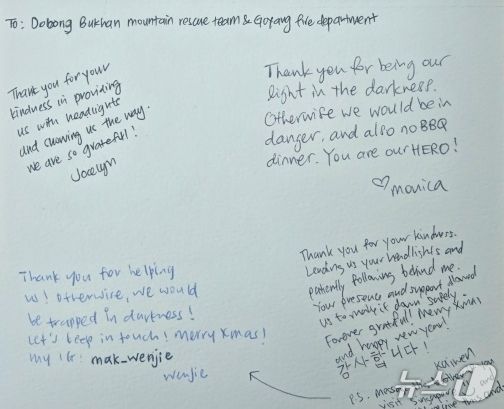 To: Dobong Bukhan mountain rescue team & Goyang fire department
Thank you for your
kindness in providing
us with headlights
and showing us the way.
We are so grateful!
Jocelyn
Thank you for being our
light in the darkness.
Otherwise we would be in
danger, and also no BBQ
dinner. You are our HERO!
♡ monica
Thank you for helping
us! Otherwise, we would
be trapped in darkness!
Let's keep in touch! Merry Xmas!
My IG: mak_wenjie
wenjie
Thank you for your kindness.
Lending us your headlights and
patiently following behind me.
Your presence and support allowed
us to make it down safely.
Forever grateful! Merry Xmas
and happy new year!
감사합니다!
P.S. message
visit Singapore
뉴스1